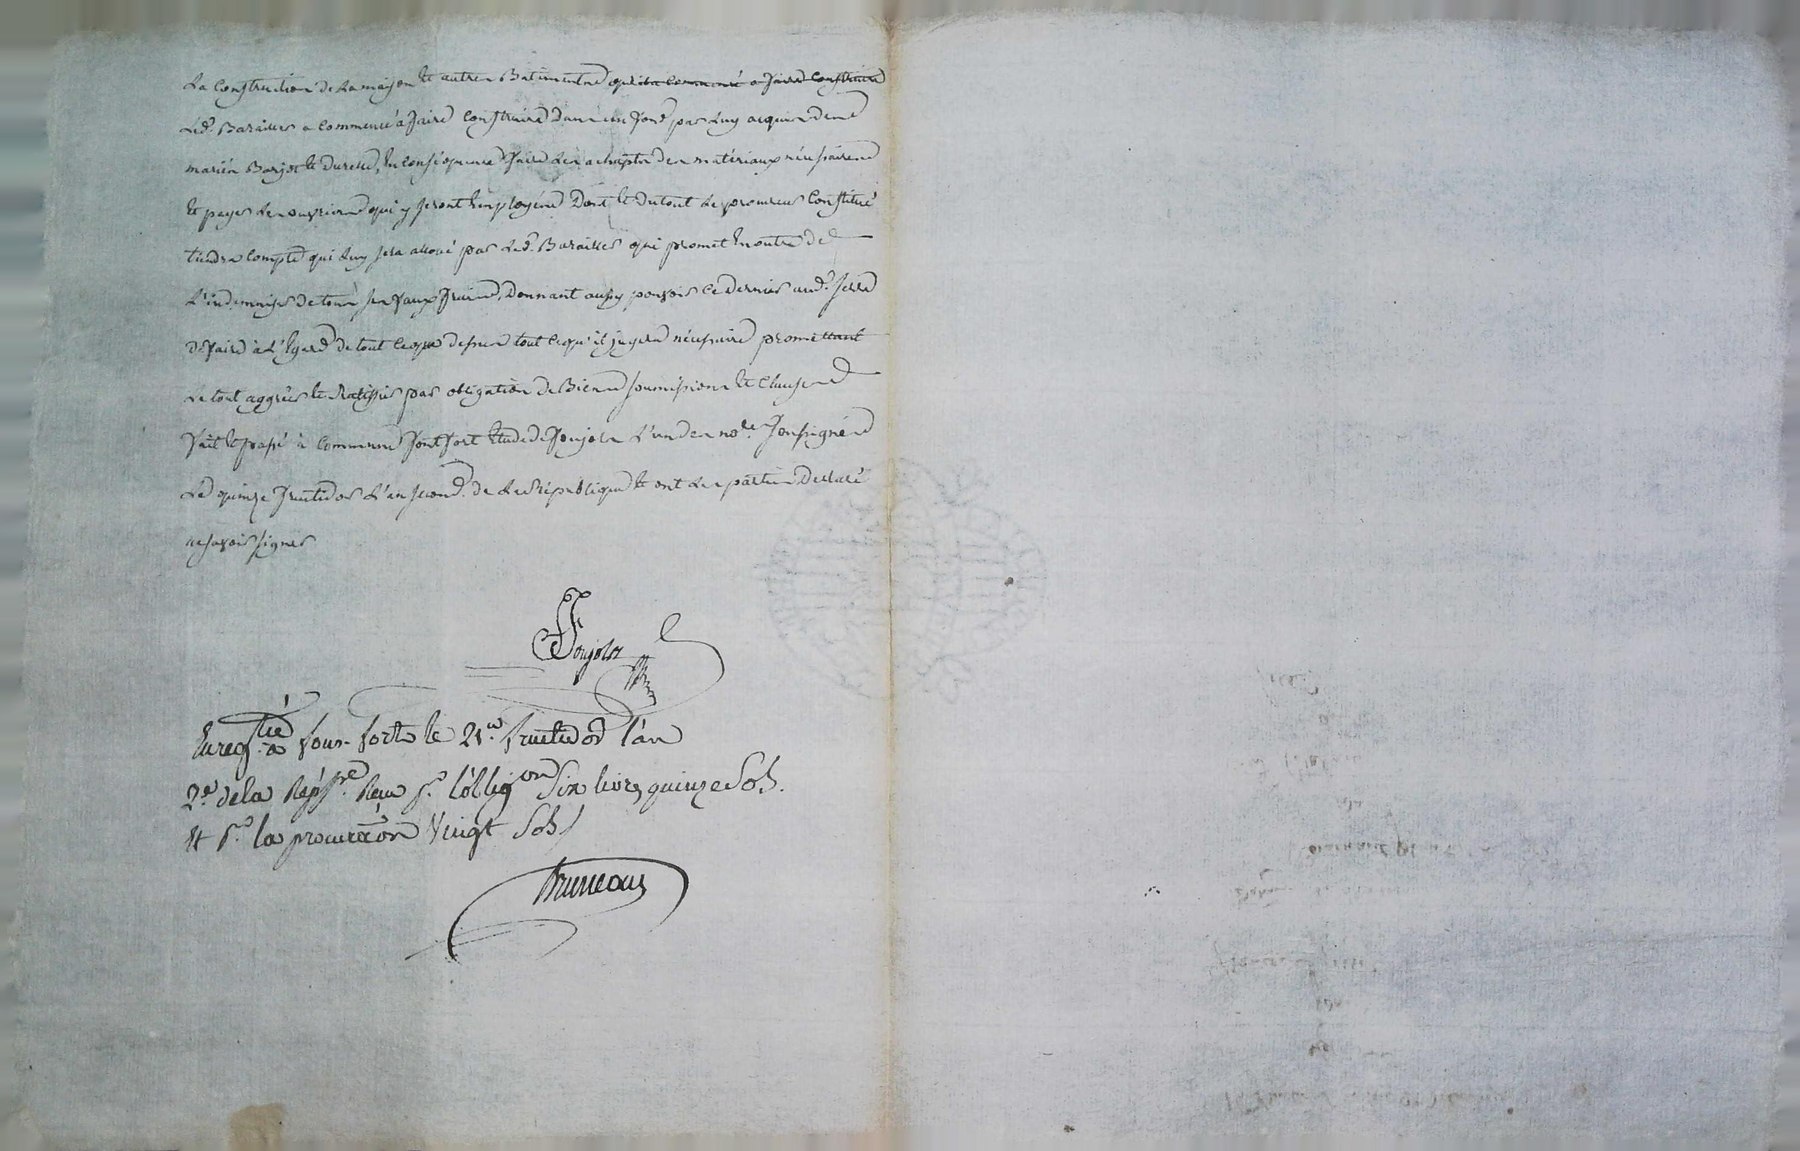 La Construction de la maison et autres Batimentns qu'il a commencé a faire Construire
Led. Barailler a commencé à faire Construire dans un fond par luy acquis des
mariés Barjot et Duret, En conséquence faire les achapts des matériaux nécessaires
et payer les ouvriers qui y seront Employés Dont et du tout le procureur Constitué
tiendra compte qui luy sera alloué par Led. Barailler qui promet En outre de
L'indemniser de tous ses faux fraix, Donnant aussy pouvoir ce dernier aud. Serre
de faire à L'Egard de tout ce que dessus tout ce qu'il jugera nécessaire promettant
Le tout aggréer et Ratiffier par obligation de Biens soumissions et Clauses
fait et passé à Commune fontfort Etude de Goujols L'un des no.res Soussignés
Le quinze fructidor L'an second. de la République et ont les parties Declaré
ne savoir signer
Goujols
Enreg.tré a fons-forts le 21.e fructidor l'an
2.e de la Rép.que Reçu p.r l'oblig.on Six livres quinze Sols.
et p.r la procuration Vingt Sols
Bruneau